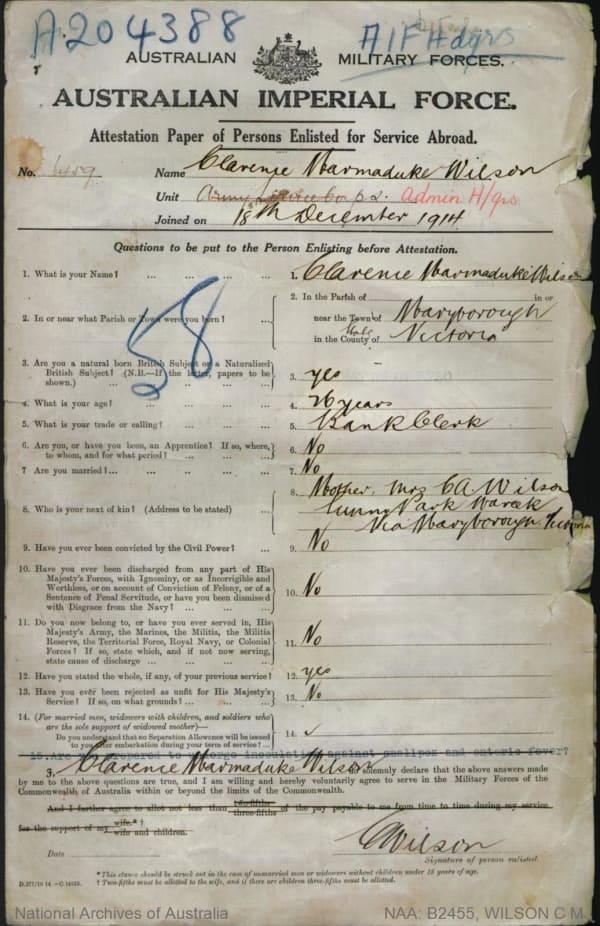 A204388
AIF Hdqrs
AUSTRALIAN MILITARY FORCES.
AUSTRALIAN IMPERIAL FORCE.
Attestation Paper of Persons Enlisted for Service Abroad.
No. 6459 Name Clarence Marmaduke Wilson
Unit Army Service Corps. Admin H/qrs.
Joined on 18th December 1914.
Questions to be put to the Person Enlisting before Attestation.
1. What is your Name? ... ... ... ... 1. Clarence Marmaduke Wilson
58
2. In or near what Parish or Town were you born? ... 2. In the Parish of in or
near the Town of Maryborough
in the County of State Victoria
3. Are you a natural born British Subject or a Naturalised
British Subject? (N.B.—If the latter, papers to be
shown.) ... ... ... ... 3. yes
4. What is your age? ... ... ... ... 4. 26 years
5. What is your trade or calling? ... ... ... 5. Bank Clerk
6. Are you, or have you been, an Apprentice? If so, where,
to whom, and for what period? ... ... ... 6. No
7 Are you married?... ... ... ... ... 7. No
8. Who is your next of kin? (Address to be stated) ... 8. Mother. Mrs C A. Wilson
Sunny Park
Via Maryborough. Victoria
9. Have you ever been convicted by the Civil Power? ... 9. No
10. Have you ever been discharged from any part of His
Majesty's Forces, with Ignominy, or as Incorrigible and
Worthless, or on account of Conviction of Felony, or of a
Sentence of Penal Servitude, or have you been dismissed
with Disgrace from the Navy? ... ... ... 10. No
11. Do you now belong to, or have you ever served in, His
Majesty's Army, the Marines, the Militia, the Militia
Reserve, the Territorial Force, Royal Navy, or Colonial
Forces? If so, state which, and if not now serving,
state cause of discharge ... ... ... ... 11. No
12. Have you stated the whole, if any, of your previous service? 12. yes
13. Have you ever been rejected as unfit for His Majesty's
Service? If so, on what grounds? ... ... ... 13. No
14. (For married men, widowers with children, and soldiers who
are the sole support of widowed mother)—
Do you understand that no Separation Allowance will be issued
to you after embarkation during your term of service? ... 14. ✓
15. Are you prepared to undergo inoculation against smallpox and enteric fever?
3. Clarence Marmaduke Wilson do solemnly declare that the above answers made
by me to the above questions are true, and I am willing and hereby voluntarily agree to serve in the Military Forces of the
Commonwealth of Australia within or beyond the limits of the Commonwealth.
And I further agree to allot not less than two-fifths three-fifths of the pay payable to me from time to time during my service
for the support of my wife.* † wife and children.
CMWilson
Date
Signature of person enlisted.
* This clause should be struck out in the case of unmarried men or widowers without children under 18 years of age.
† Two-fifths must be allotted to the wife, and if there are children three-fifths must be allotted.
National Archives of Australia
NAA: B2455, WILSON C M